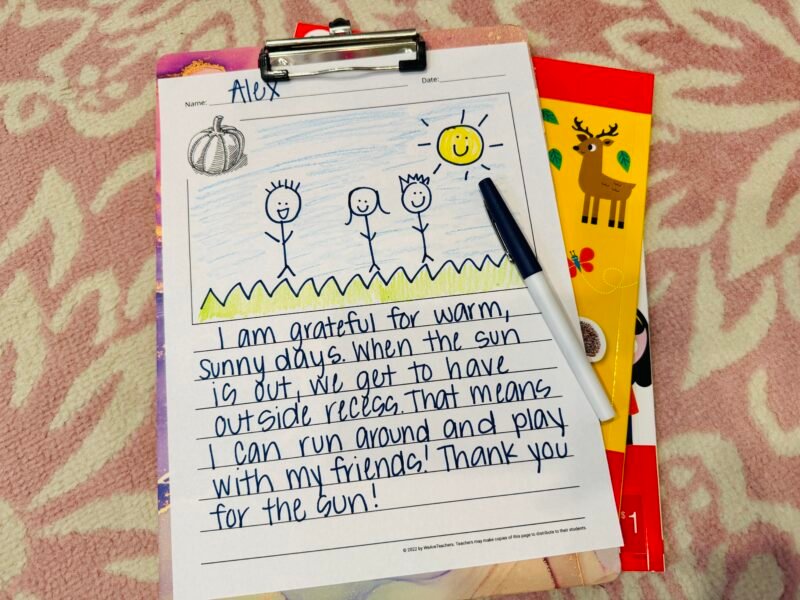 Name: Alex Date:
I am grateful for warm,
sunny days. When the sun
is out, we get to have
outside recess. That means
I can run around and play
with my friends! Thank you
for the sun!
© 2022 by WeAreTeachers. Teachers may make copies of this page to distribute to their students.
$1